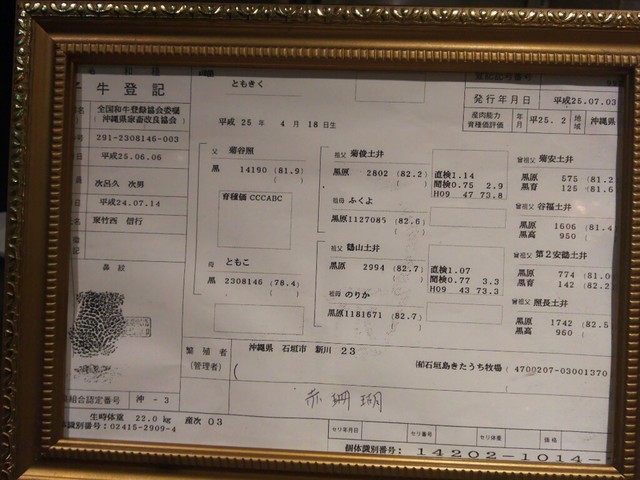 子牛登記
ともきく
登記記号番号
発行年月日 平成25.07.03
産肉能力
育種価評価 年月 平成25. 2 地域 沖縄県
全国和牛登録協会委嘱
(沖縄県家畜改良協会)
291-2308146-003
平成25.06.06
次呂久 次男
平成24.07.14
東竹西 信行
平成 25 年 4 月 18 日生
父 菊谷照
黒 14190 (81.9)
育種価 CCCABC
母 ともこ
黒 2308146 (78.4)
祖父 菊俊土井
黒原 2802 (82.2)
直検1.14
間検0.75 2.9
H09 47 73.8
祖母 ふくよ
黒原1127085 (82.6)
祖父 勝山土井
黒原 2994 (82.7)
直検1.07
間検0.77 3.3
H09 43 73.3
祖母 のりか
黒原1181671 (82.7)
曾祖父 菊安土井
黒原 575 (81.2
黒育 125 (81.6
曾祖父 谷福土井
黒原 1606 (81.4
黒高 950 (
曾祖父 第2安鶴土井
黒原 774 (81.0
黒育 142 (82.2
曾祖父 照長土井
黒原 1742 (82.5
黒高 960 (
鼻紋
繁殖者
(管理者)
沖縄県 石垣市 新川 23
(
㈲石垣島きたうち牧場 4700207-03001370
)
赤珊瑚
組合認定番号 沖 - 3
生時体重 22.0 kg 産次 03
識別番号:02415-2909-4
セリ年月日 セリ番号 セリ体重 価格
個体識別番号: 14202-1014-